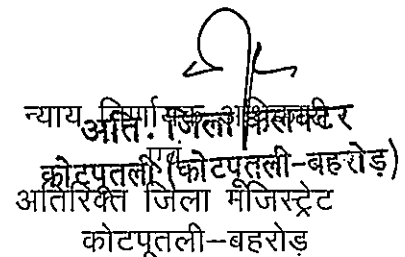 न्याय निर्णायक अधिकारी
अति. जिला कलक्टर
एवं
कोटपूतली (कोटपूतली-बहरोड़)
अतिरिक्त जिला मजिस्ट्रेट
कोटपूतली-बहरोड़